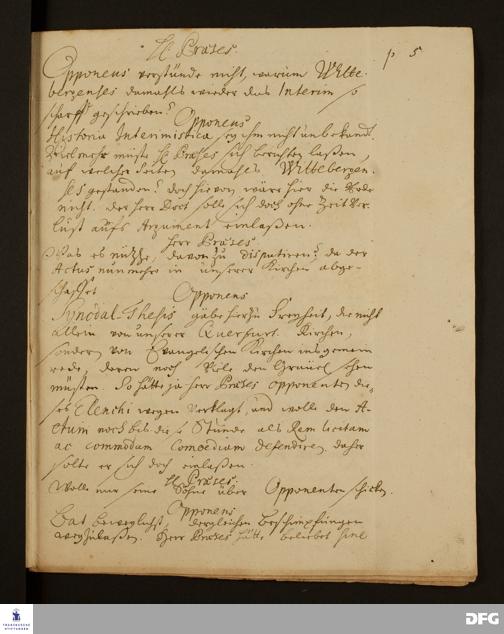 H. Præses.
p 5
Opponens verstünde nicht, warum Witte-
bergenses damahls wieder das Interim so
scharff geschrieben?
Opponens
Historia Interimistica sey ihm nicht unbekandt
Vielmehr müste H. Præses sich berichten laßen,
auf welcher Seiten damahls Wittebergen-
ses gestanden? doch hievon wäre hier die Rede
nicht. der Herr Doct. solle sich doch ohne Zeit Ver-
lust aufs Argument einlaßen.
Herr Præses.
Was es nütze, davon zu disputiren? da der
Actus nunmehr in unserer Kirchen abge-
schaffet
Opponens
Synodal-Thesis gäbe hierzu Freyheit, die nicht
allein von unserer Querfurt. Kirchen,
sondern von Evangelischen Kirchen ins gemein
rede, deren noch Viele den Gräuel sehen
müsten. So hätte ja Herr Præses Opponenten die-
ses Elenchi wegen verklagt, und wolle den A-
ctum noch bis diese Stunde als Rem licitam
ac commodam Comoediam defendiren, daher
solte er sich doch einlaßen.
H. Præses:
Wolle nur seine Söhne über Opponenten schicken.
Opponens
Bat beweglichst, dergleichen Beschimpfungen
wegzulaßen. Herr Præses hätte beliebet seine
FRANCKESCHE STIFTUNGEN
DFG